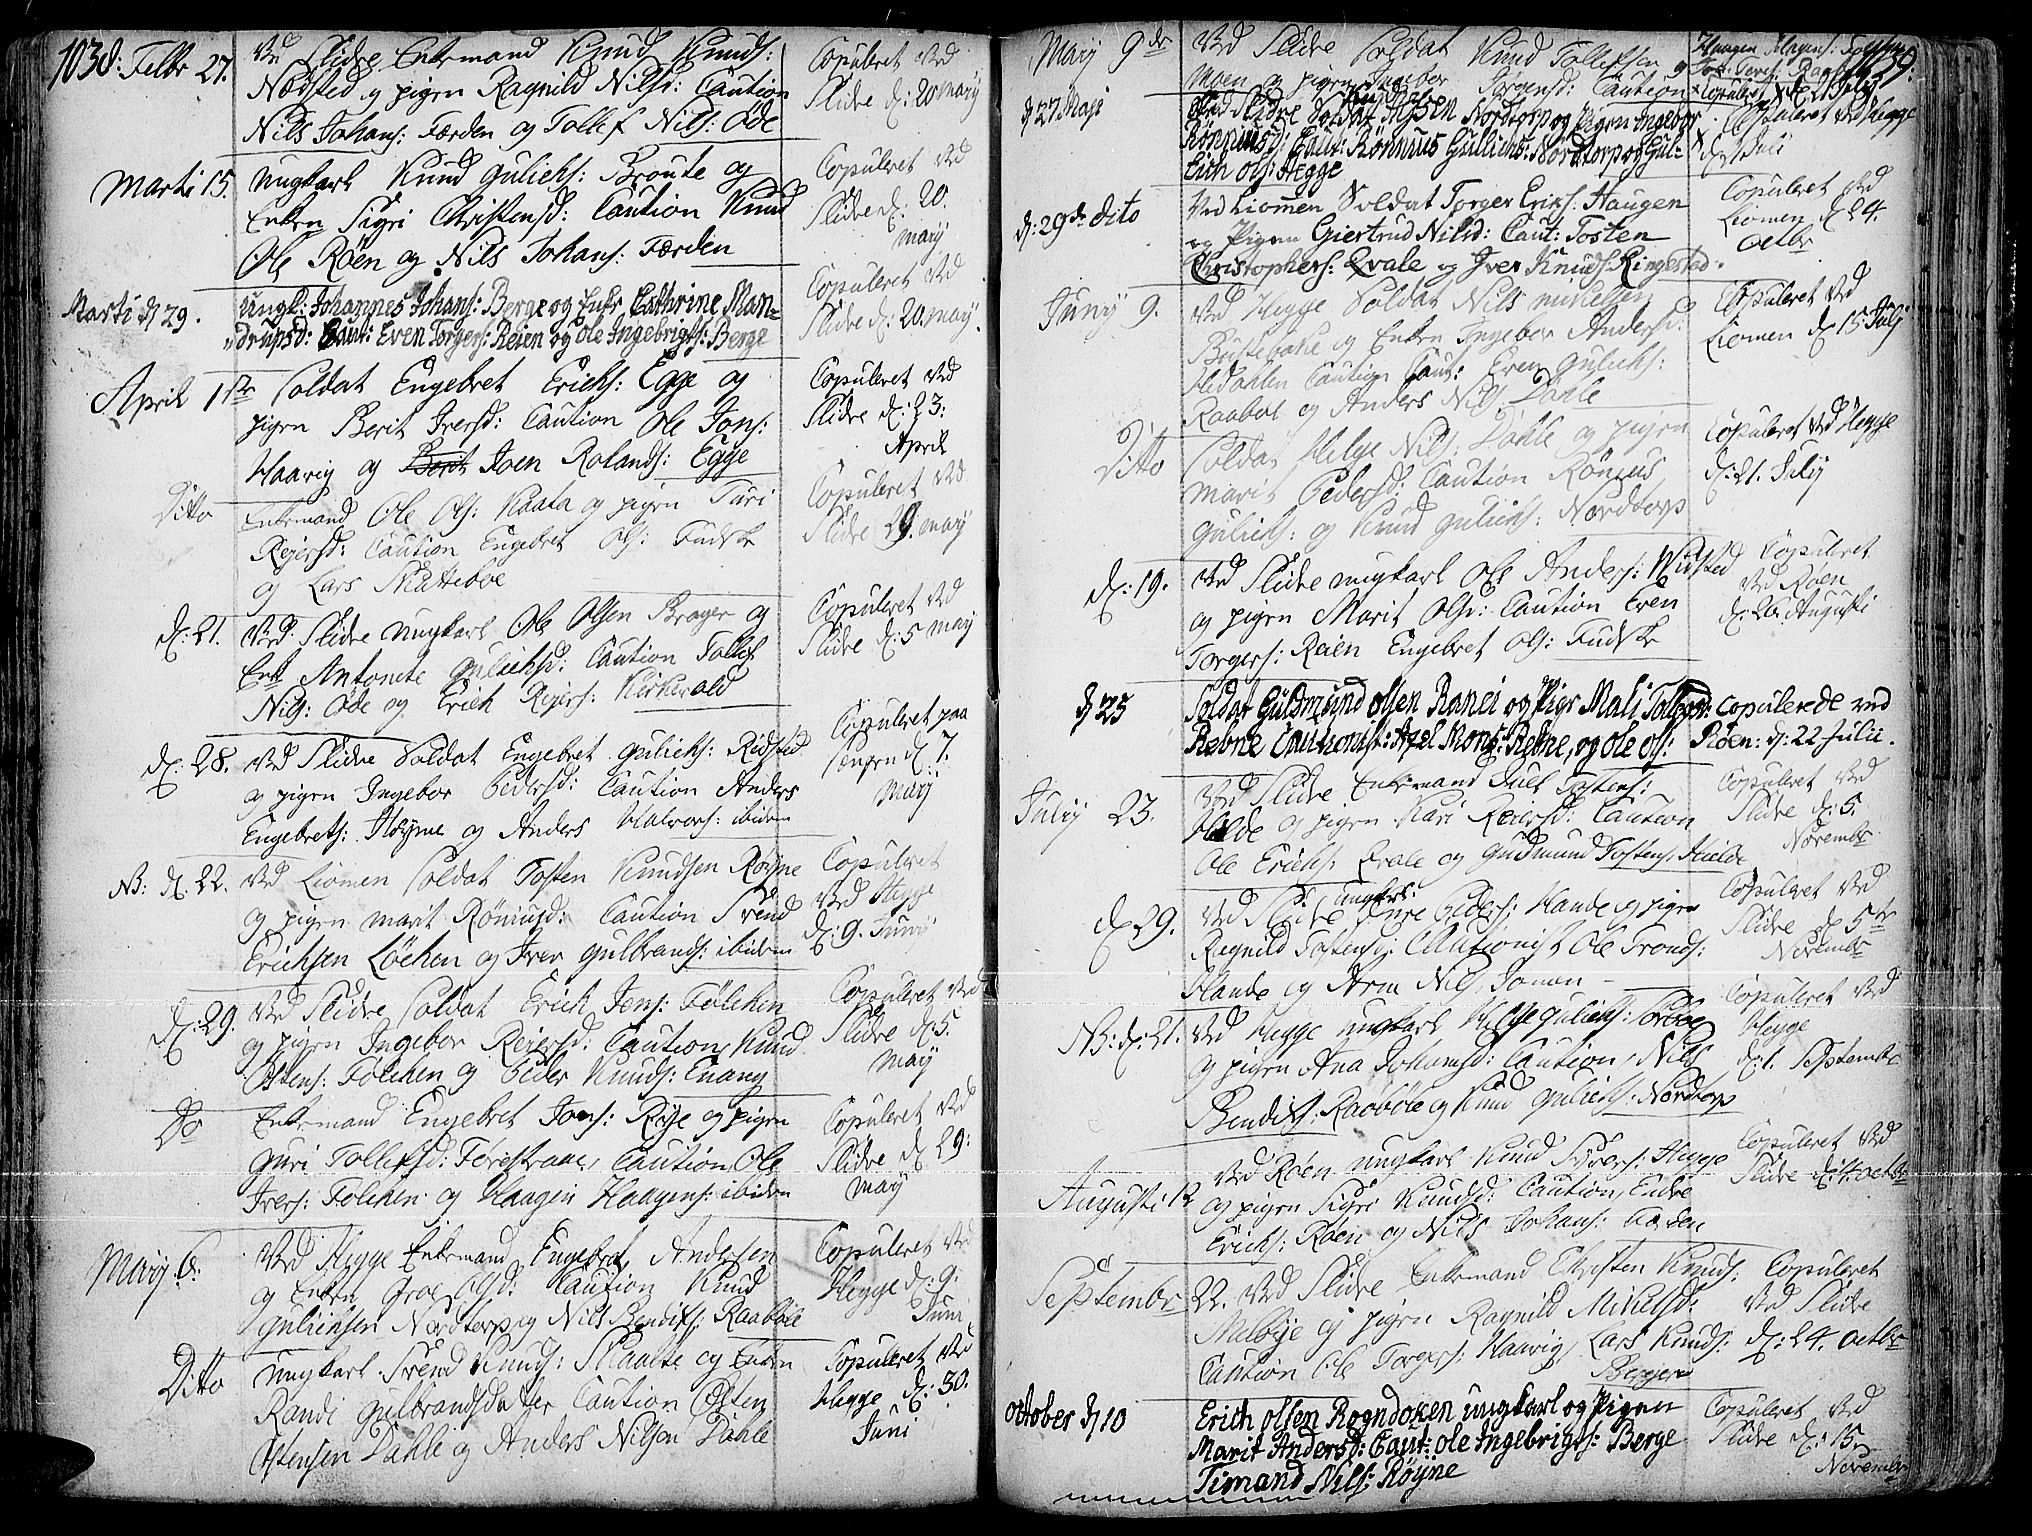 1038: Febr 27. Ved Slidre Enkemand Knud Knuds:
Nordsted og pigen Ragnild Nilsd: Caution
Nils Johans: Færden og Tollef Nils: Øde
Copuleret Ved
Slidre d: 20 maÿ
Marti 15. ungkarl Knud Gulichs: Broute og
Enken Sigri Christensd: Caution Knud
Ole Røen og Nils Johans: Færden
Copuleret Ved
Slidre d: 20.
maÿ
Marti d 29. ungk: Johannes Johans: Berge og Enke Cathrine Man=
drupsd: Caut: Even Torgers: Reien og Ole Ingebrigts: Berge
Copuleret Ved
Slidre d: 20. maÿ.
April 1ste Soldat Engebret Erichs: Egge og
pigen Berit Iversd: Caution Ole Jons:
Haavig og Joen Rolands: Egge
Copuleret Ved
Slidre d: 23:
April
Dito Enkemand Ole Ols: Kaata og pigen Turi
Reiersd: Caution Engebret Ols: Fudske
og Lars Skatteboe
Copuleret Ved
Slidre 29. maÿ
d: 21. Ved Slidre ungkarl Ole Olsen Brager og
Enk Antonete Gulichsd: Caution Tollef
Nils: Øde og Erich Reiers: Kirkevold
Copuleret Ved
Slidre d: 5 maÿ
d: 28. Ved Slidre Soldat Engebret Gulichs: Ridsted
og pigen Ingebor Pedersd: Caution Anders
Engebrets: Høyne og Anders Halvors: ibidem
Copuleret paa
Sengen d: 7.
Maÿ
NB: d: 22. Ved Liomen Soldat Tosten Knudsen Røyne
og pigen marit Rønnusd: Caution Svend
Erichsen Løchen og Iver Gulbrands: ibidem
Copuleret
Ved Hegge
d: 9. Junÿ
d: 29. Ved Slidre Soldat Erich Jens: Følchen
og pigen Ingebor Reiersd: Caution Knud
Ostens: Følchen og Peder Knuds: Enang
Copuleret Ved
Slidre d: 5.
maÿ
Do Enkemand Engebret Jons: Rye og pigen
Guri Tollefsd: Førestrane, Caution Ole
Ivers: Følchen og Haagen Haagens: ibidem
Copuleret Ved
Slidre d 29:
maÿ
Maÿ 6: Ved Hegge Enkemand Engebret Andersen
og Enken Groe Olsd: Caution Knud
Gulichsen Nordtorp og Nils Bendits: Raabøle
Copuleret Ved
Hegge d: 9.
Juni
Dito ungkarl Svend Knuds: Skaatte og Enken
Randi Gulbrandsdatter Caution Østen
Østensen Dahle og Anders Nilsen Dahle
Copuleret Ved
Hegge d: 30.
Juni
Maÿ 9de Ved Slidre Soldat Knud Tollefsen
Moen og pigen Ingebor Jørgensd: Caution
d 27 Maji Ved Slidre Soldat Nordtorp og Pigen Ingebor
Rønnusd: Caut: Rønnus Gulichs: Nordtorp og Gul-
Erich Ols: Hegge
Copuleret ved Hegge
d 21 Juli
d: 29de dito Ved Liomen Soldat Torger Eriks: Haugen
og Pigen Giertrud Nilsd: Caut: Tosten
Christophers: Qvale og Iver Knuds: Ringestad.
Copuleret Ved
Liomen d 24.
octbr
Junÿ 9. Ved Hegge Soldat Nils mikelsen
og Enken Ingebor Andersd:
Hedahlen Caution Caut: Even Gulichs:
Raabøl og Anders Nils: Dahle
Copuleret Ved
Liomen d 15 Julj
Dito Soldat Helge Nils: Dahle og pigen
Marit Pedersd: Caution Rønnus
Gulichs: og Knud Gulichs: Nordtorp
Copuleret Ved Hegge
d: 21. Julÿ
d: 19. Ved Slidre ungkarl Ole Anders: Wisted
og pigen Marit Olsd: Caution Even
Torgers: Reien Engebret Ols: Fudske
Copuleret
Ved Røen
d: 26. Augusti
d 25 Soldat Gudmund Olsen Ranei og Pige Mali Tolevsd:
Rebne Cautionist: Axel Mons: Rebne, og Ole Ols:
Copulerede ved
Røen: d: 22 Julii.
Julÿ 23. Ved Slidre Enkemand Juel Tostens:
Hilde og pigen Kari Reiersd: Caution
Ole Erichs: Qvale og Gudmund Tostens: Hielde
Copuleret Ved
Slidre d: 5.
Novembr
d 29. Ved Slidre ungkarl Peders: Hande og pigen
Ragnild Tostensd: Cautionist Ole Tronds:
Hande og Arne Nils: Jomen -
Copuleret Ved
Slidre d 5te
Novembr
NB: d: 21. Ved Hegge ungkarl Helge Gulichs:
og pigen Ana Johansd: Caution, Nils
Bendits: Raabøle og Knud Gulichs: Nordtorp
Copuleret Ved
Hegge
d: 1. Septembr
Augusti 12 Ved Røen ungkarl Knud Syvers: Hegge
og pigen Sigri Knudsd: Caution, Endre
Erichs: Røen og Nils Johans: Færden
Copuleret Ved
Slidre d: 4. octbr
Septembr 22. Ved Slidre Enkemand Christen Knuds:
Melbye og pigen Ragnild Mikelsd:
Caution Ole Torgers: Haavig, Lars Knuds:
Bergen
Copuleret
Ved Slidre
d: 24. octbr
October d 10 Erich Olsen Rogndoken ungkarl og Pigen
Marit Andersd: Caut: Ole Ingebrigts: Berge
Timand Nils: Røyne
Copuleret Ved
Slidre d: 15
Novembr